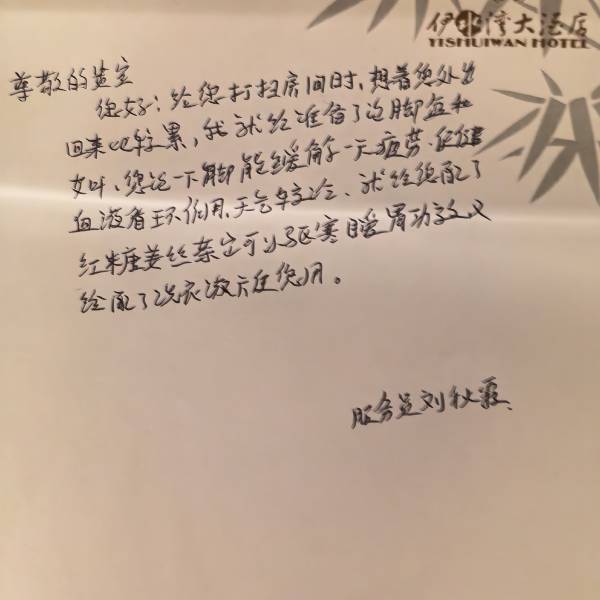 伊水湾大酒店
YISHUIWAN HOTEL
尊敬的贵宾
您好：给您打扫房间时，想着您外出
回来比较累，我就给准备了泡脚盆和
艾叶、您泡一下脚能缓解一天疲劳、促健
血液循环作用，天气较冷、就给您配了
红糖姜丝茶它可以驱寒暖胃功效又
给配了洗衣液方便您用。
服务员刘秋霞